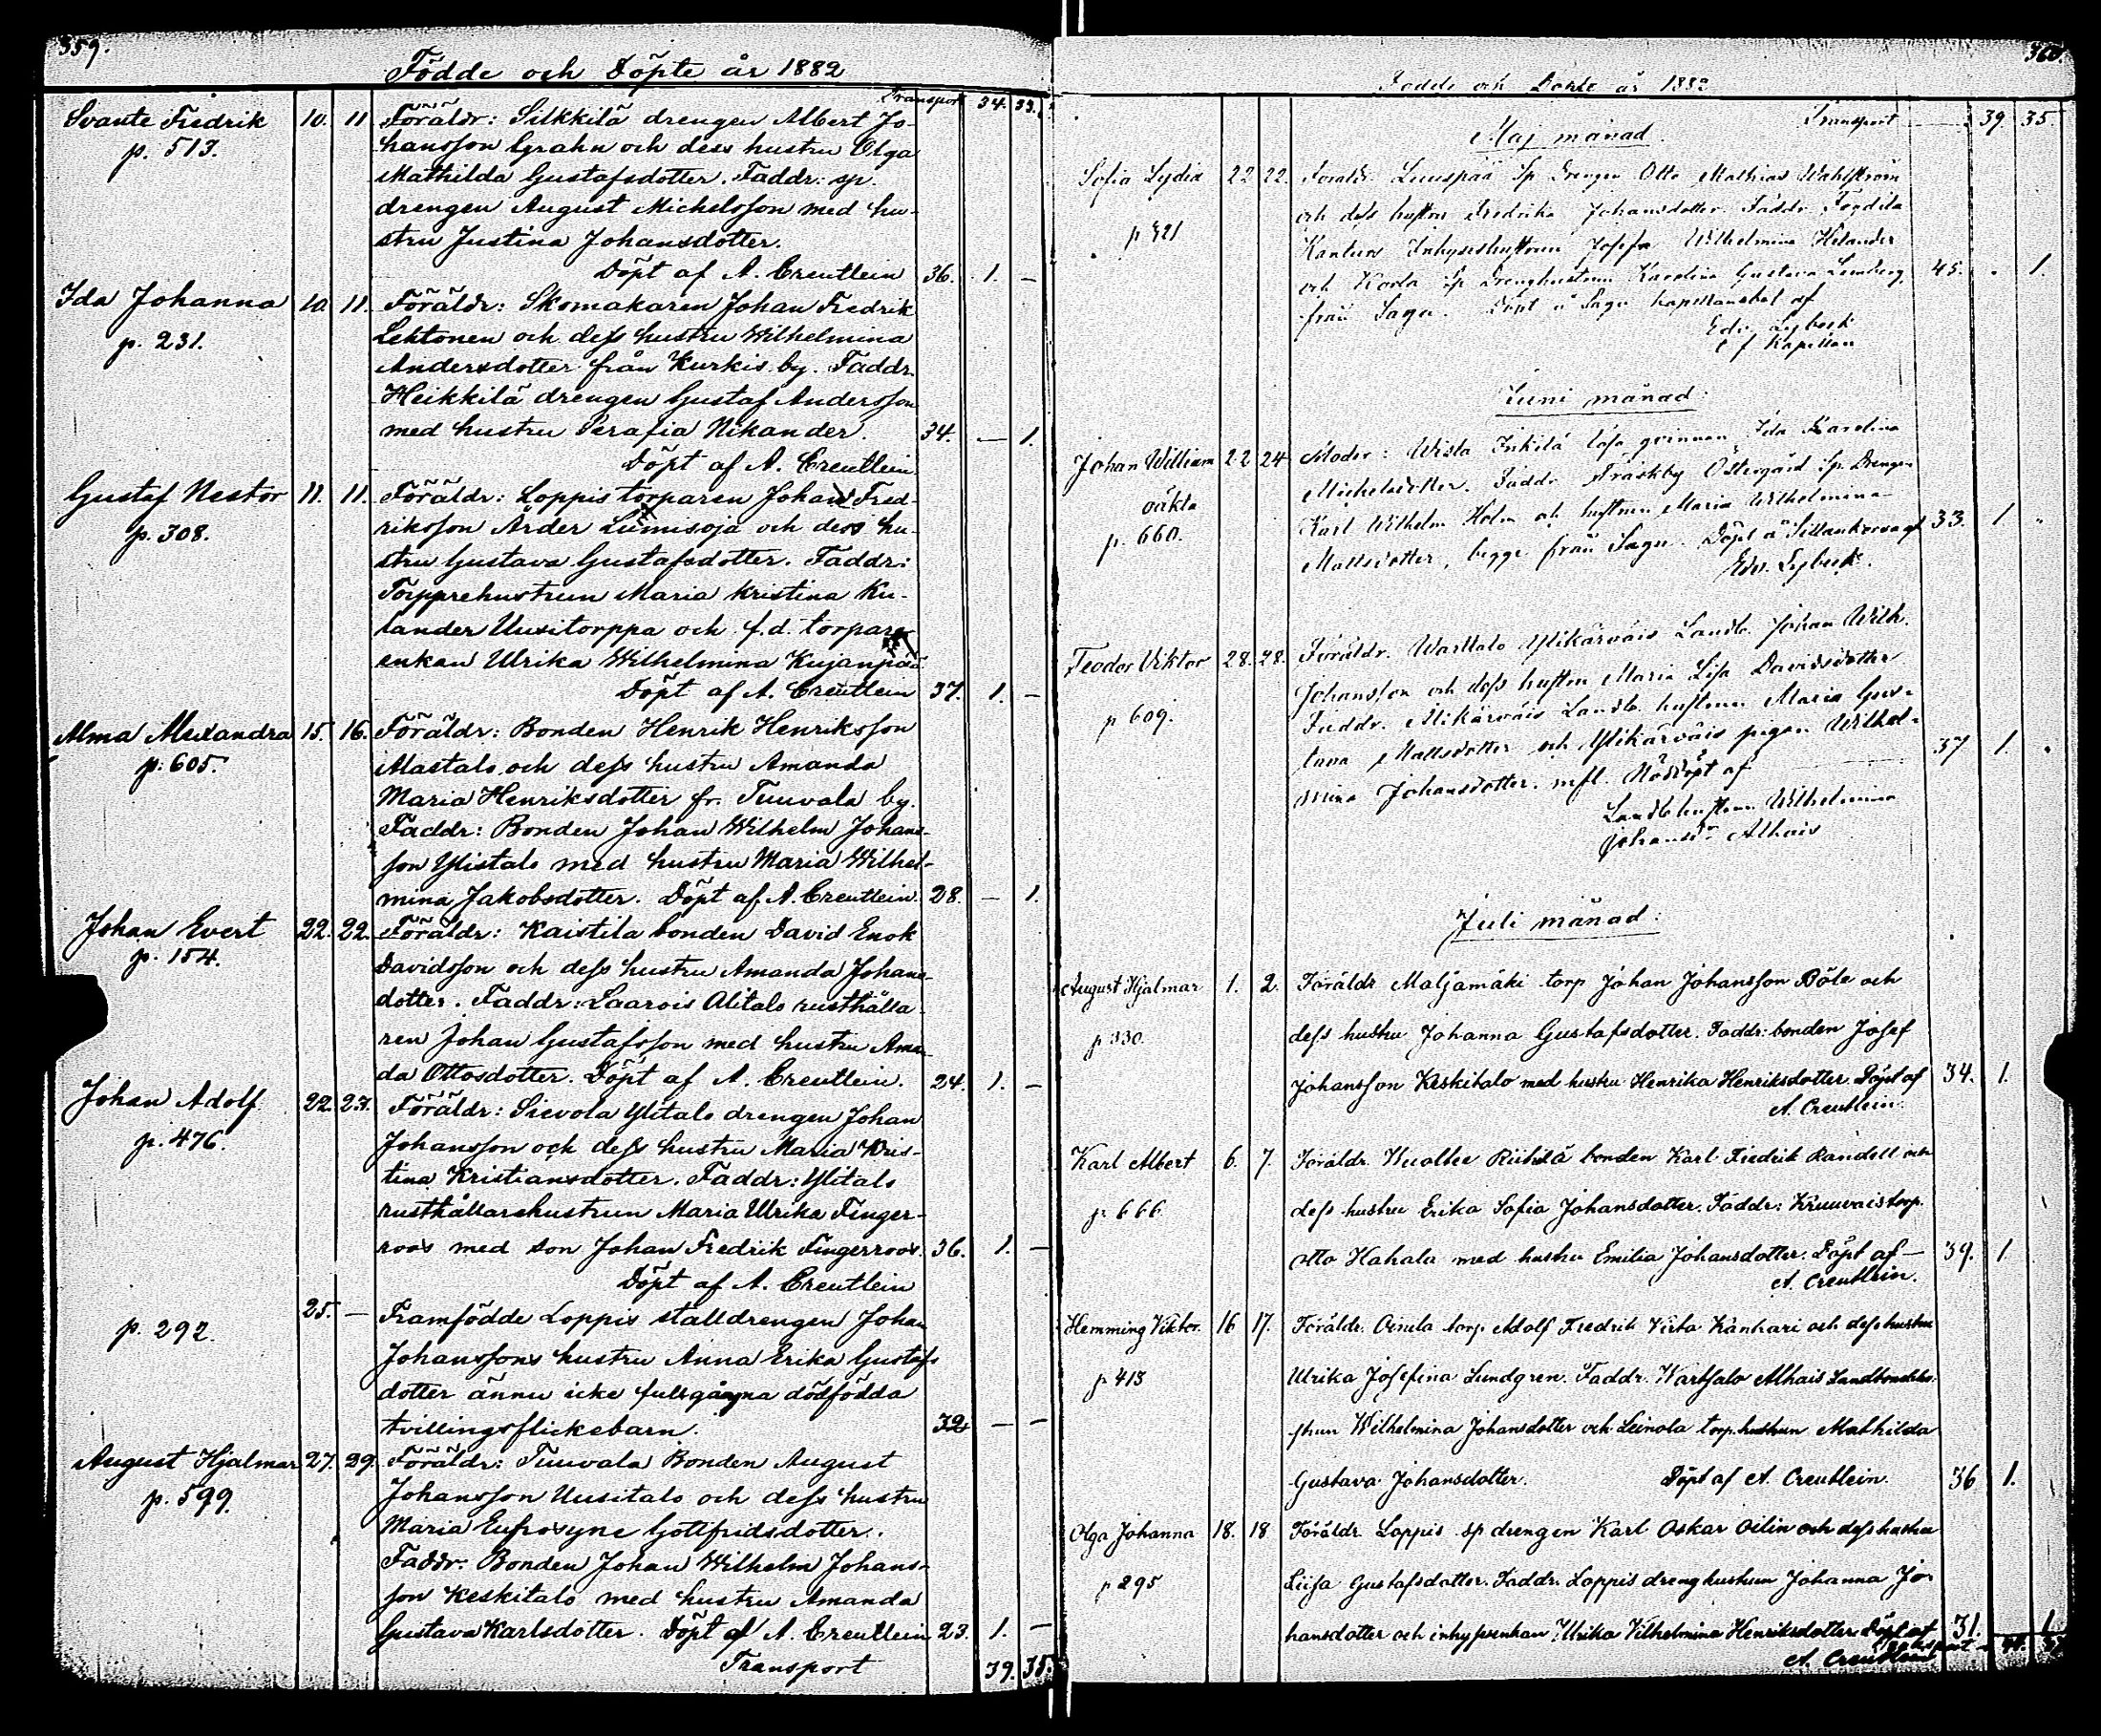 359.
Födde och Döpte år 1882
Transport 34. 33.
Svante Fredrik 10. 11 Föräldr: Silkkilä drengen Albert Jo-
p. 513. hansson Grahn och dess hustru Olga
Mathilda Gustafsdotter. Faddr: sp.
drengen August Michelsson med hu-
stru Justina Johansdotter.
Döpt af A. Creutlein 36. 1. —
Ida Johanna 10. 11. Föräldr: Skomakaren Johan Fredrik
p. 231. Lehtonen och dess hustru Wilhelmina
Andersdotter från Kurkis by. Faddr.
Heikkilä drengen Gustaf Andersson
med hustru Serafia Nikander. 34. — 1.
Döpt af A. Creutlein.
Gustaf Nestor 11. 11. Föräldr: Loppis torparen Johan Fred-
p. 308. riksson Ärder och dess hu-
stru Gustava Gustafsdotter. Faddr:
Torpparehustrun Maria Kristina Ku-
lander Uusitorppa och f.d. torpare
enkan Ulrika Wilhelmina Kujanpää
Döpt af A. Creutlein 37. 1. —
Alma Alexandra 15. 16. Föräldr: Bonden Henrik Henriksson
p. 605. Alastalo och dess hustru Amanda
Maria Henriksdotter fr. Tuuvala by.
Faddr: Bonden Johan Wilhelm Johans-
son Ylistalo med hustru Maria Wilhel-
mina Jakobsdotter. Döpt af A. Creutlein. 28. — 1.
Johan Evert 22. 22. Föräldr: Kaistila bonden David Enok
p. 154. Davidsson och dess hustru Amanda Johans-
dotter. Faddr: Laarois Alitalo rusthålla-
ren Johan Gustafsson med hustru Aman-
da Ottosdotter. Döpt af A. Creutlein. 24. 1. —
Johan Adolf 22. 23. Föräldr: Sievola Ylitalo drengen Johan
p. 476. Johansson och dess hustru Maria Kris-
tina Kristiansdotter. Faddr: Ylitalo
rusthållarehustrun Maria Ulrika Finger-
roos med son Johan Fredrik Fingerroos. 36. 1. —
Döpt af A. Creutlein
25. — Framfödde Loppis stalldrengen Johan
p. 292. Johanssons hustru Anna Erika Gustafs
dotter ännu icke fullgångna dödfödda
tvillingsflickebarn. 32 — —
August Hjalmar 27. 29. Föräldr: Tuuvala Bonden August
p. 599. Johansson Uusitalo och dess hustru
Maria Eufrosyne Gottfridsdotter.
Faddr: Bonden Johan Wilhelm Johans-
son Keskitalo med hustru Amanda
Gustava Karlsdotter. Döpt af A. Creutlein 23. 1. —
Transport 39. 35.
360.
Födde och Döpte år 1882
Transport 39. 35.
Maj månad.
Sofia Lydia 22 22. Föräldr. Luuspää Sp. Drengen Otto Mathias Wahlström
p 321 och dess hustru Fredrika Johansdotter. Faddr.
Inhyseshustrun Josefa Wilhelmina Helander
och Karla Sp Drenghustrun Karolina Gustava Lemberg 45. . 1.
från Sagu. Döpt i Sagu kapellansbol af
Edv. Lybeck
Kapellan
Juni månad.
Johan William 22 24 Moder: Wista Inkilä lösa qvinnan Ida Karolina
oäkta Michelsdotter. Faddr. Träskby Östergård Sp. Drengen
p. 660. Karl Wilhelm Holm och hustrun Maria Wilhelmina
Mattsdotter, begge från Sagu. Döpt af 33. 1
Edv. Lybeck.
Teodor Viktor 28. 28. Föräldr. Warttalo Landb. Johan Wilh.
p 609. Johansson och dess hustru Maria Lisa Davidsdotter
Faddr. Landb. hustrun Maria Gus-
tava Mattsdotter och pigan Wilhel-
mina Johansdotter. Nöddöpt af 37 1.
Landb.hustrun Wilhelmina
Johansdr Alhais
Juli månad:
August Hjalmar 1. 2. Föräldr Maljamäki torp Johan Johansson Böle och
p 330. dess hustru Johanna Gustafsdotter. Faddr: bonden Josef
Johansson Keskitalo med hustru Henrika Henriksdotter. Döpt af 34. 1.
A. Creutlein.
Karl Albert 6. 7. Föräldr. bonden Karl Fredrik Randell och
p 666. dess hustru Erika Sofia Johansdotter. Faddr: Kruuvais torp.
Otto Hahala med hustru Emilia Johansdotter. Döpt af — 39. 1
A. Creutlein.
Hemming Viktor. 16 17. Föräldr. torp Adolf Fredrik Kankari och dess hustru
p 418 Ulrika Josefina Lundgren. Faddr. Wartsalo Alhais Landbondehu-
strun Wilhelmina Johansdotter och Leinola torp. hustrun Mathilda
Gustava Johansdotter. Döpt af A. Creutlein. 36 1.
Olga Johanna 18. 18 Föräldr. Loppis sp drengen Karl Oskar Oilin och dess hustru
p 295 Liisa Gustafsdotter. Faddr. Loppis drenghustrun Johanna Jo-
hansdotter och inhysenkan Ulrika Vilhelmina Henriksdotter. Döpt af 31. 1
A. Creutlein Transport